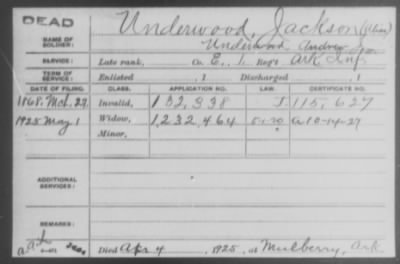 DEAD
Underwood, Jackson (Alias)
NAME OF SOLDIER: Underwood, Andrew Jxn
SERVICE: Late rank, Co. E, 1 Reg't Ark Inf
TERM OF SERVICE: Enlisted , 1 Discharged , 1
DATE OF FILING. CLASS. APPLICATION NO. LAW. CERTIFICATE NO.
1868. Mch. 27 Invalid, 132,338 J 115,627
1925 May 1 Widow, 1,232,464 5-1-20 A 10-14-27
Minor,
ADDITIONAL SERVICES:
REMARKS:
Died Apr 4, 1925, at Mulberry, Ark